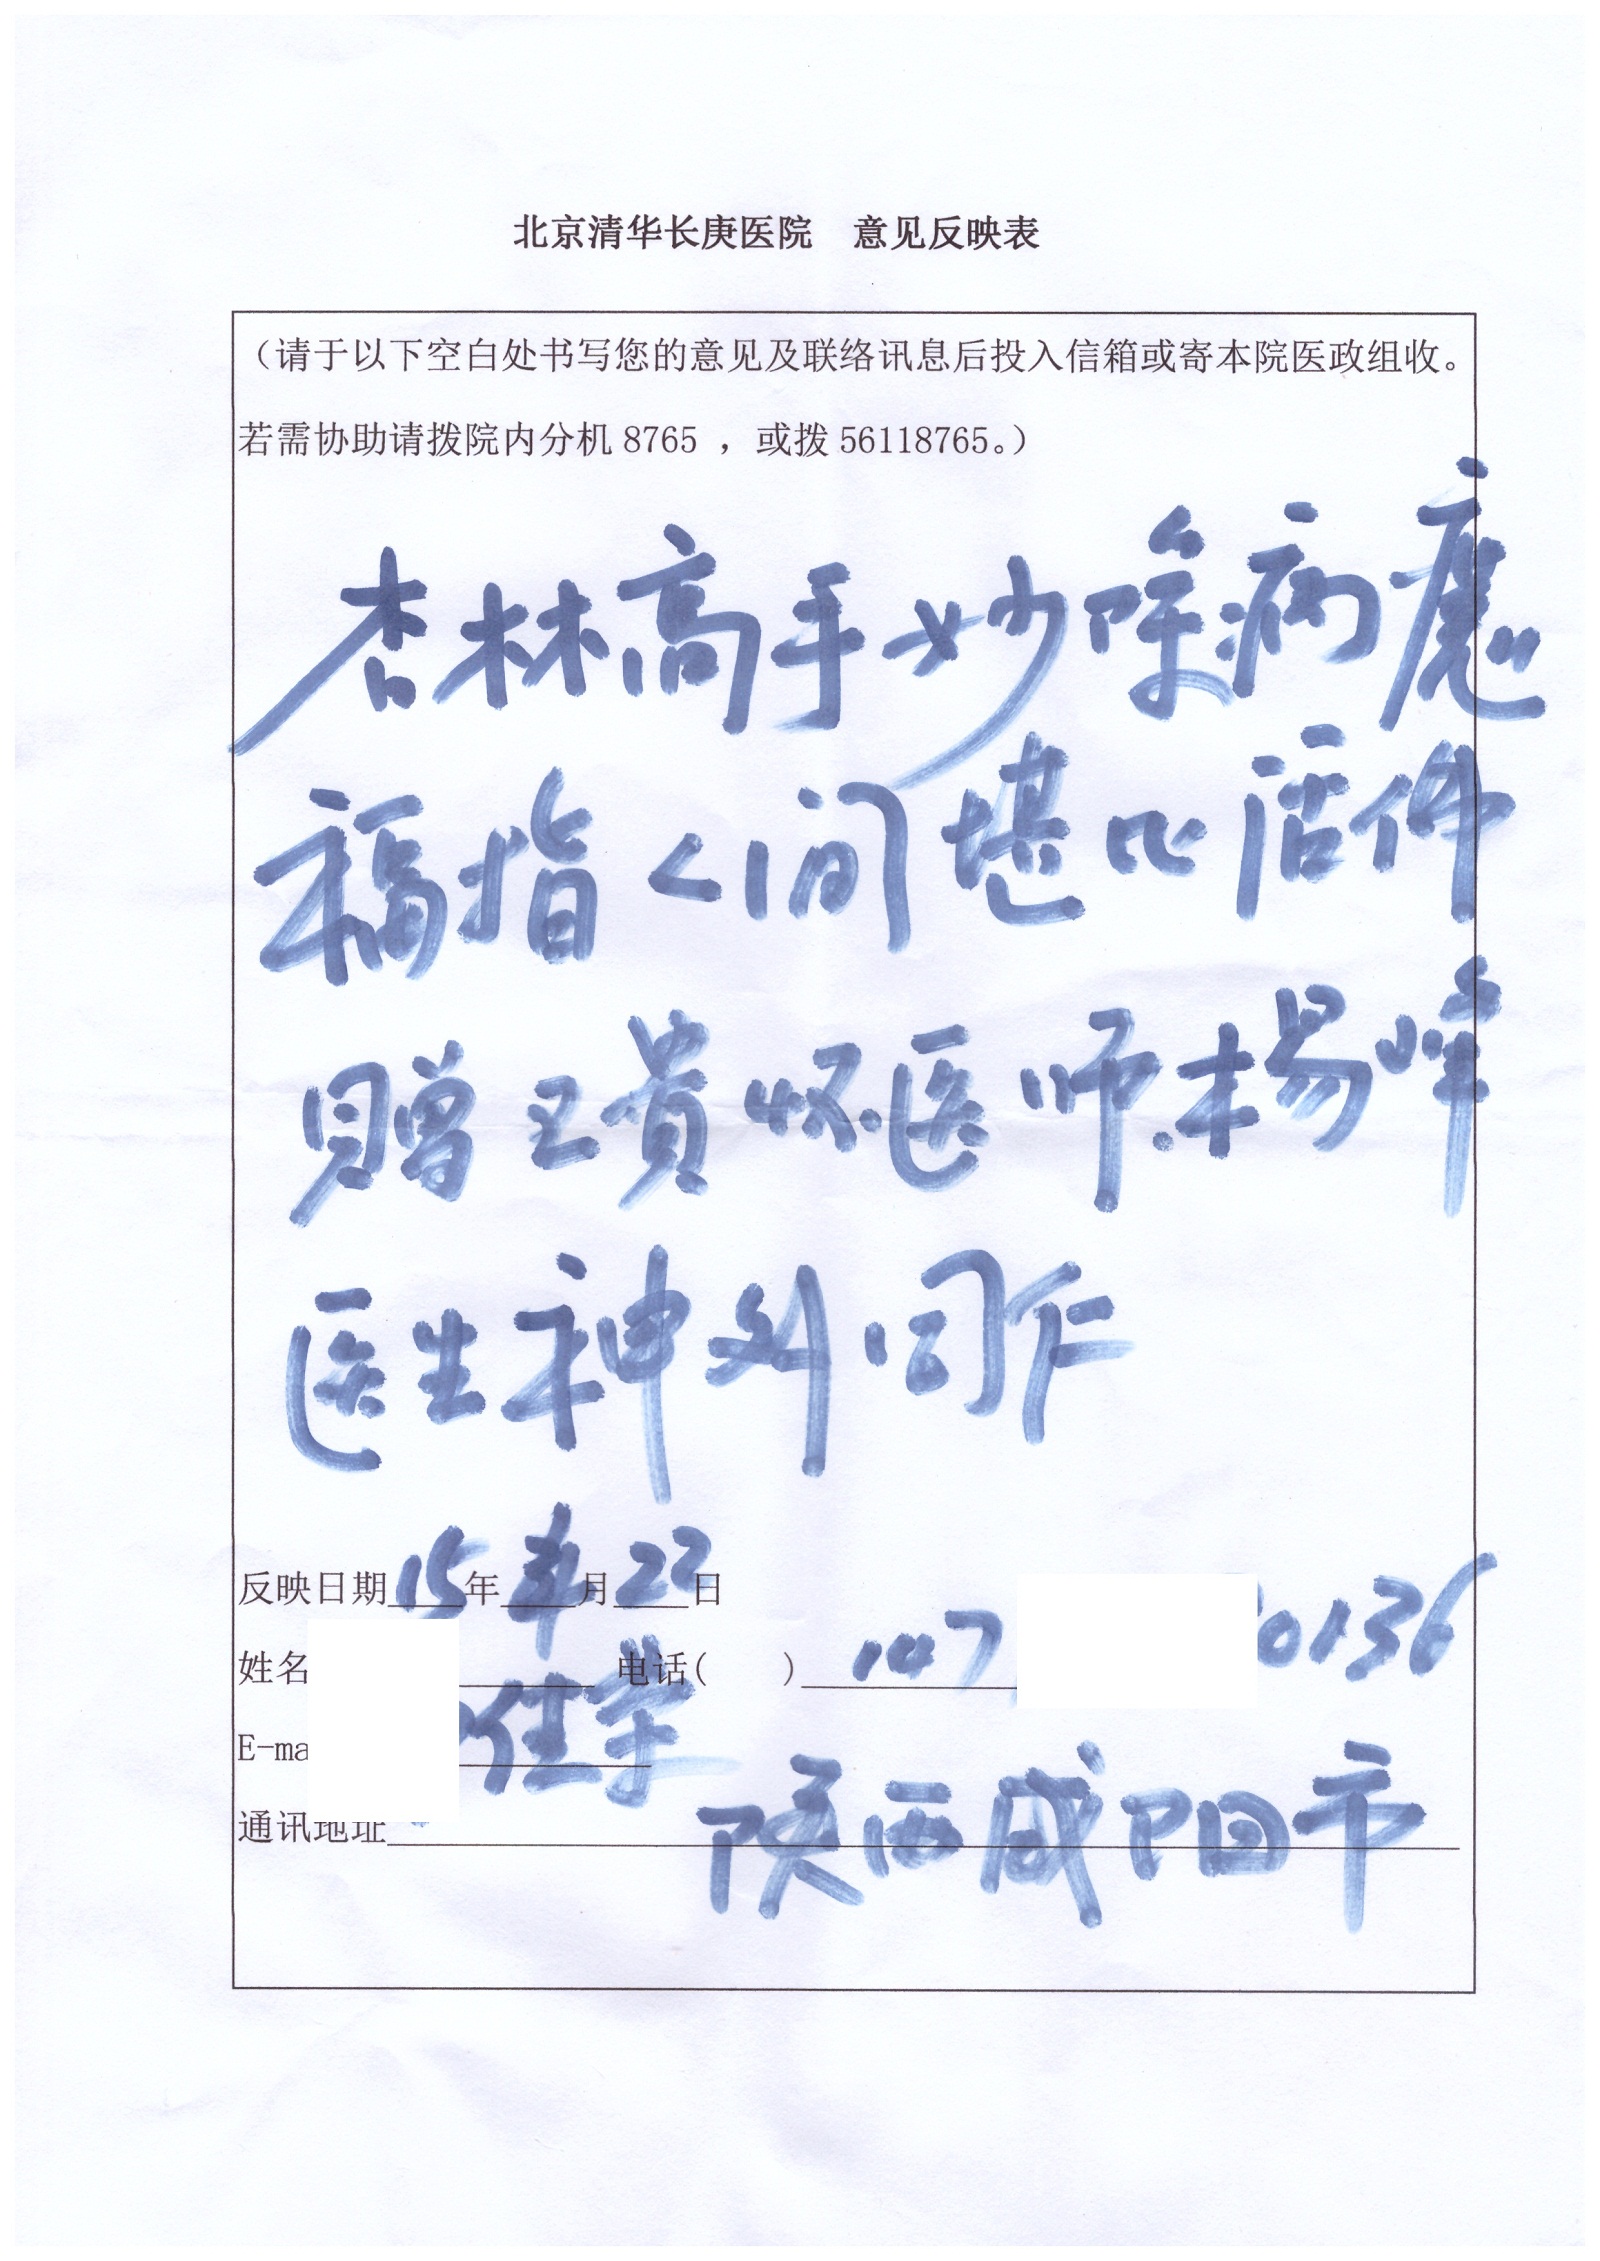 北京清华长庚医院 意见反映表
（请于以下空白处书写您的意见及联络讯息后投入信箱或寄本院医政组收。
若需协助请拨院内分机 8765 ，或拨 56118765。）
杏林高手妙除病魔
福指人间堪比活佛
赠王贵怀医师.杨峰
医生神外同仁
反映日期 15 年 月 22 日
姓名 电话( ) 147 0136
E-ma
通讯地址 陕西咸阳市